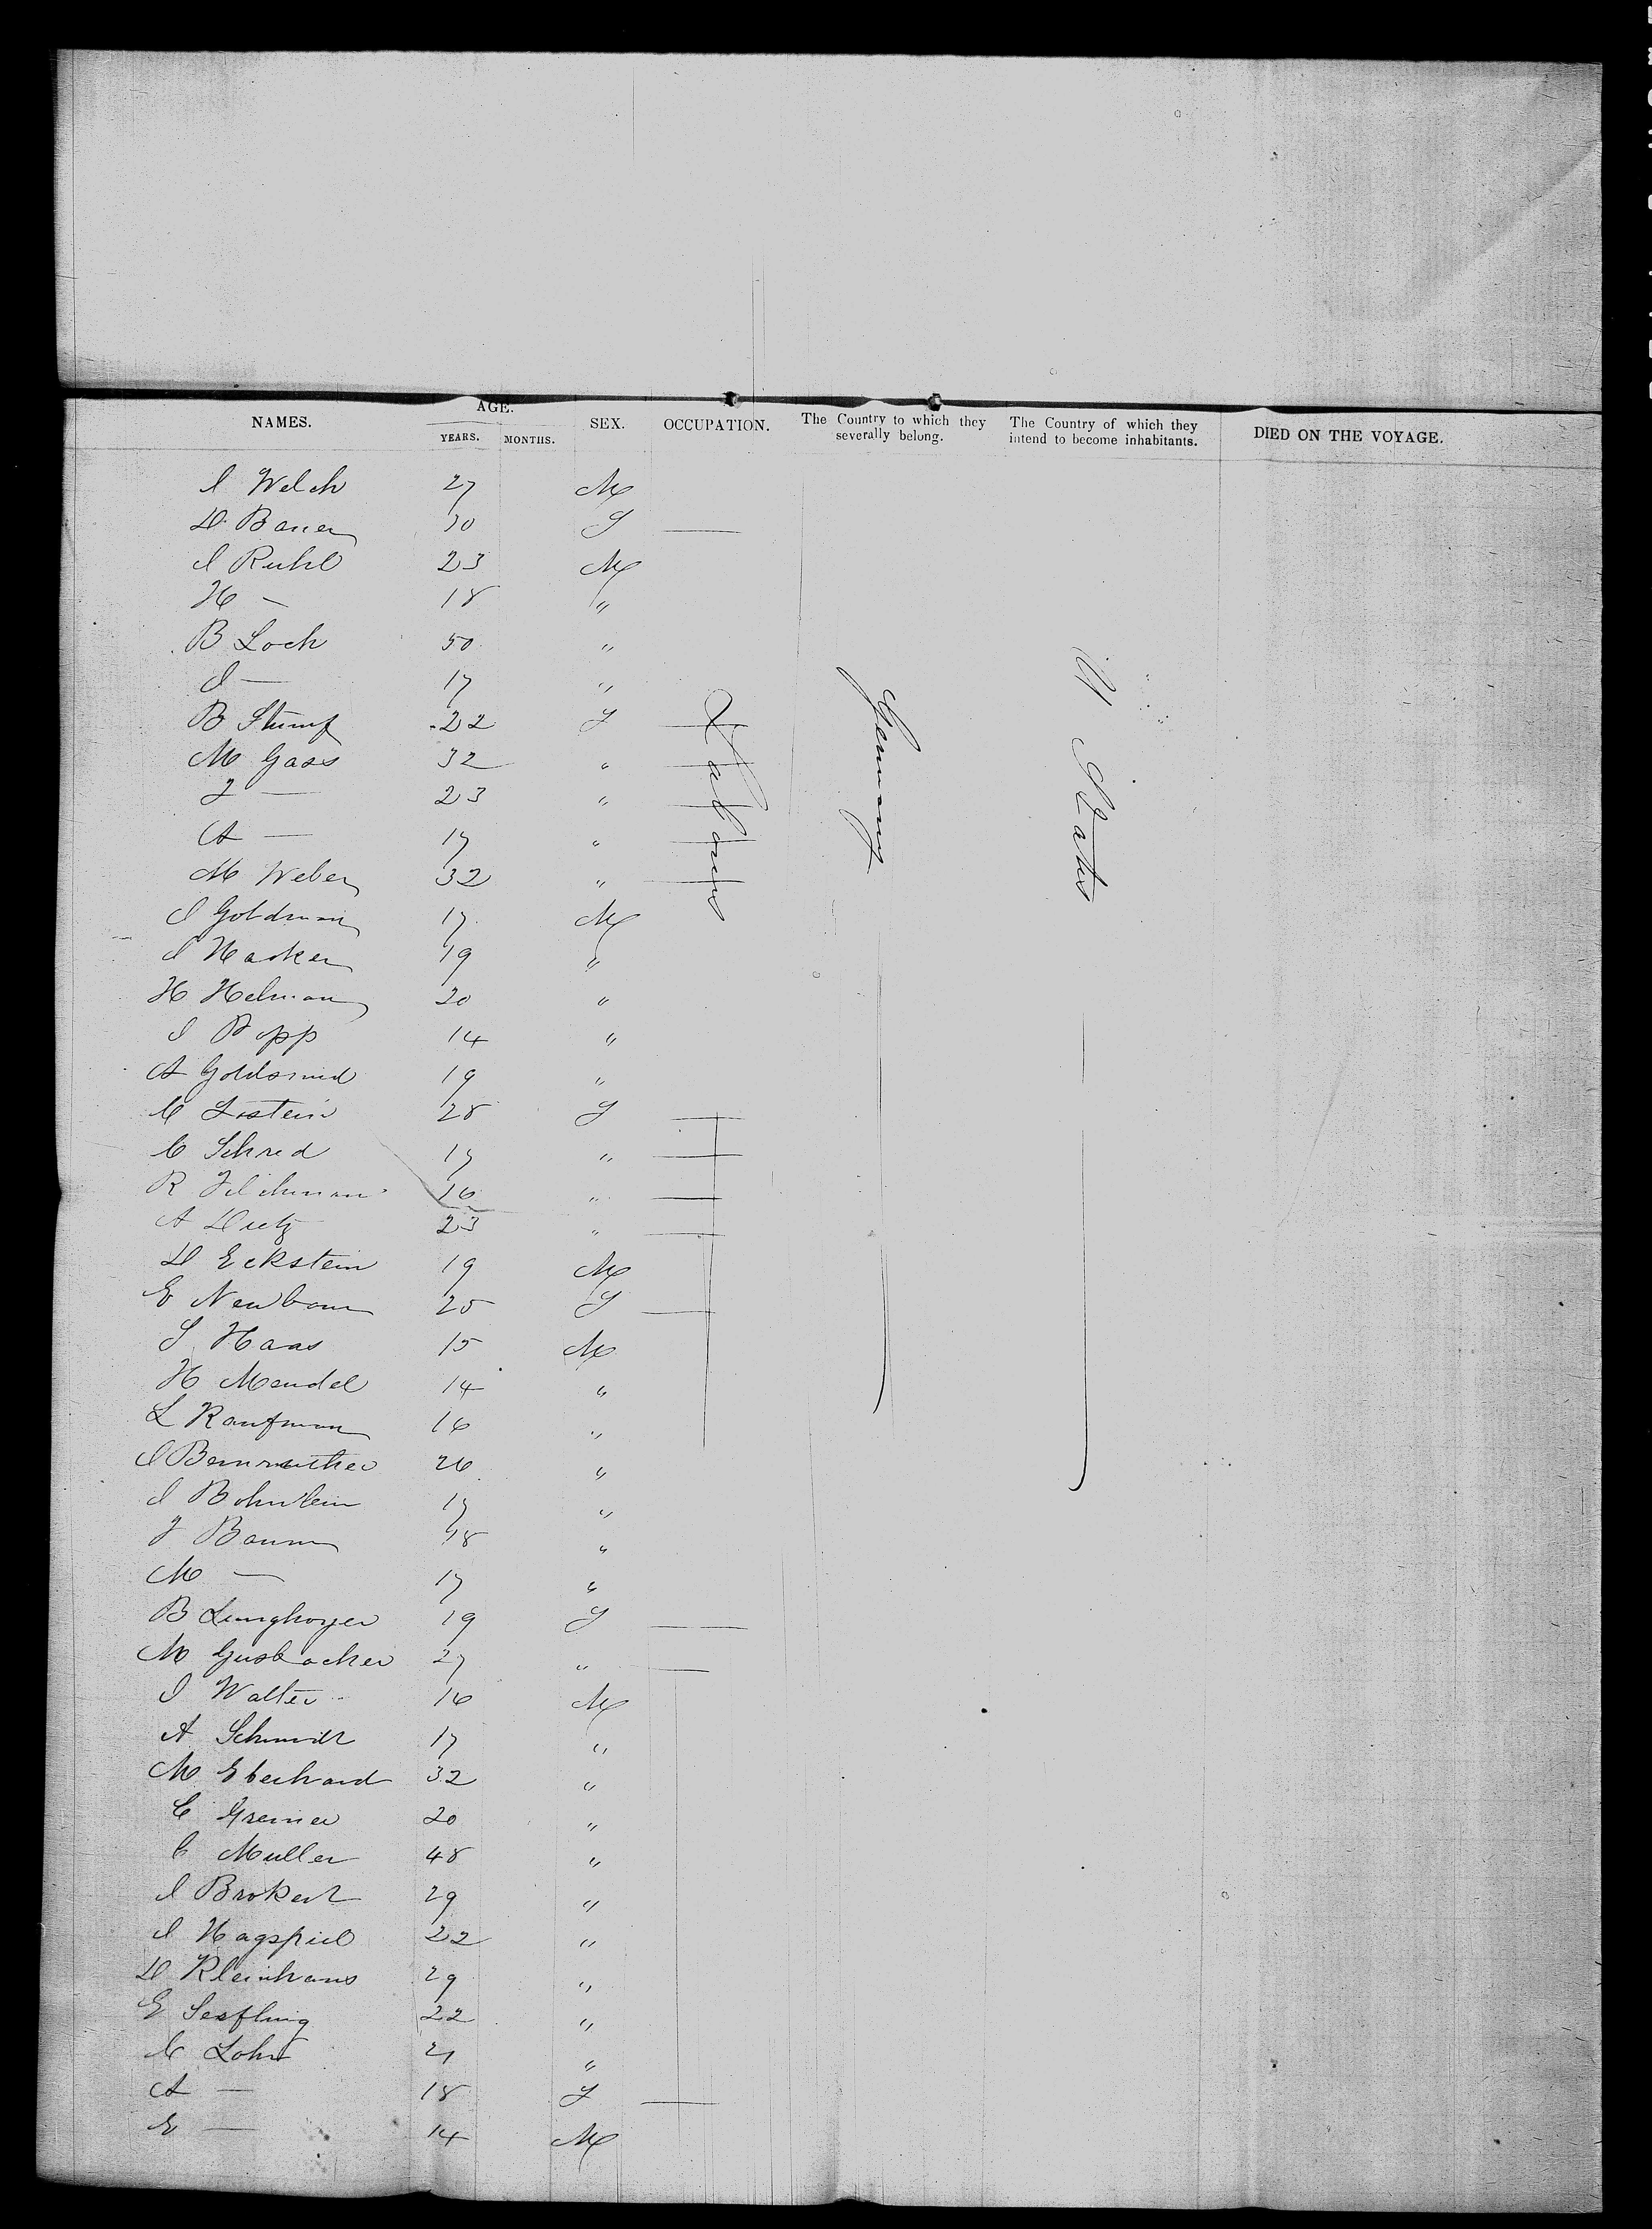 NAMES. AGE. YEARS. MONTHS. SEX. OCCUPATION. The Country to which they severally belong. The Country of which they intend to become inhabitants. DIED ON THE VOYAGE.
Labourers Germany U States
J Welch 27 M
D Bauer 30 F —
J Ruhl 23 M
H — 18 "
B Loch 50 "
J — 17 "
B Stumf 22 F —
M Gass 32 " —
F — 23 " —
A — 17 " —
M Weber 32 " —
J Goldman 17 M
J Hacker 19 "
H Helman 20 "
J Popp 14 "
A Goldsmid 19 "
C 28 F —
C Schred 17 " —
R 16 " —
A Dietz 23 " —
D Eckstein 19 M
E Newbaum 25 F —
S Haas 15 M
H Mendel 14 "
L Kaufman 16 "
J 26 "
J Bohnlein 17 "
F Baum 18 "
M — 17 "
B 19 F —
M 27 " —
J Walter 16 M
A Schmidt 17 "
M Eberhard 32 "
C Greiner 20 "
C Muller 48 "
J Brokert 29 "
J Hagspiel 22 "
D Kleinhans 29 "
E 22 "
C Lohr 21 "
A — 18 F —
E — 14 M